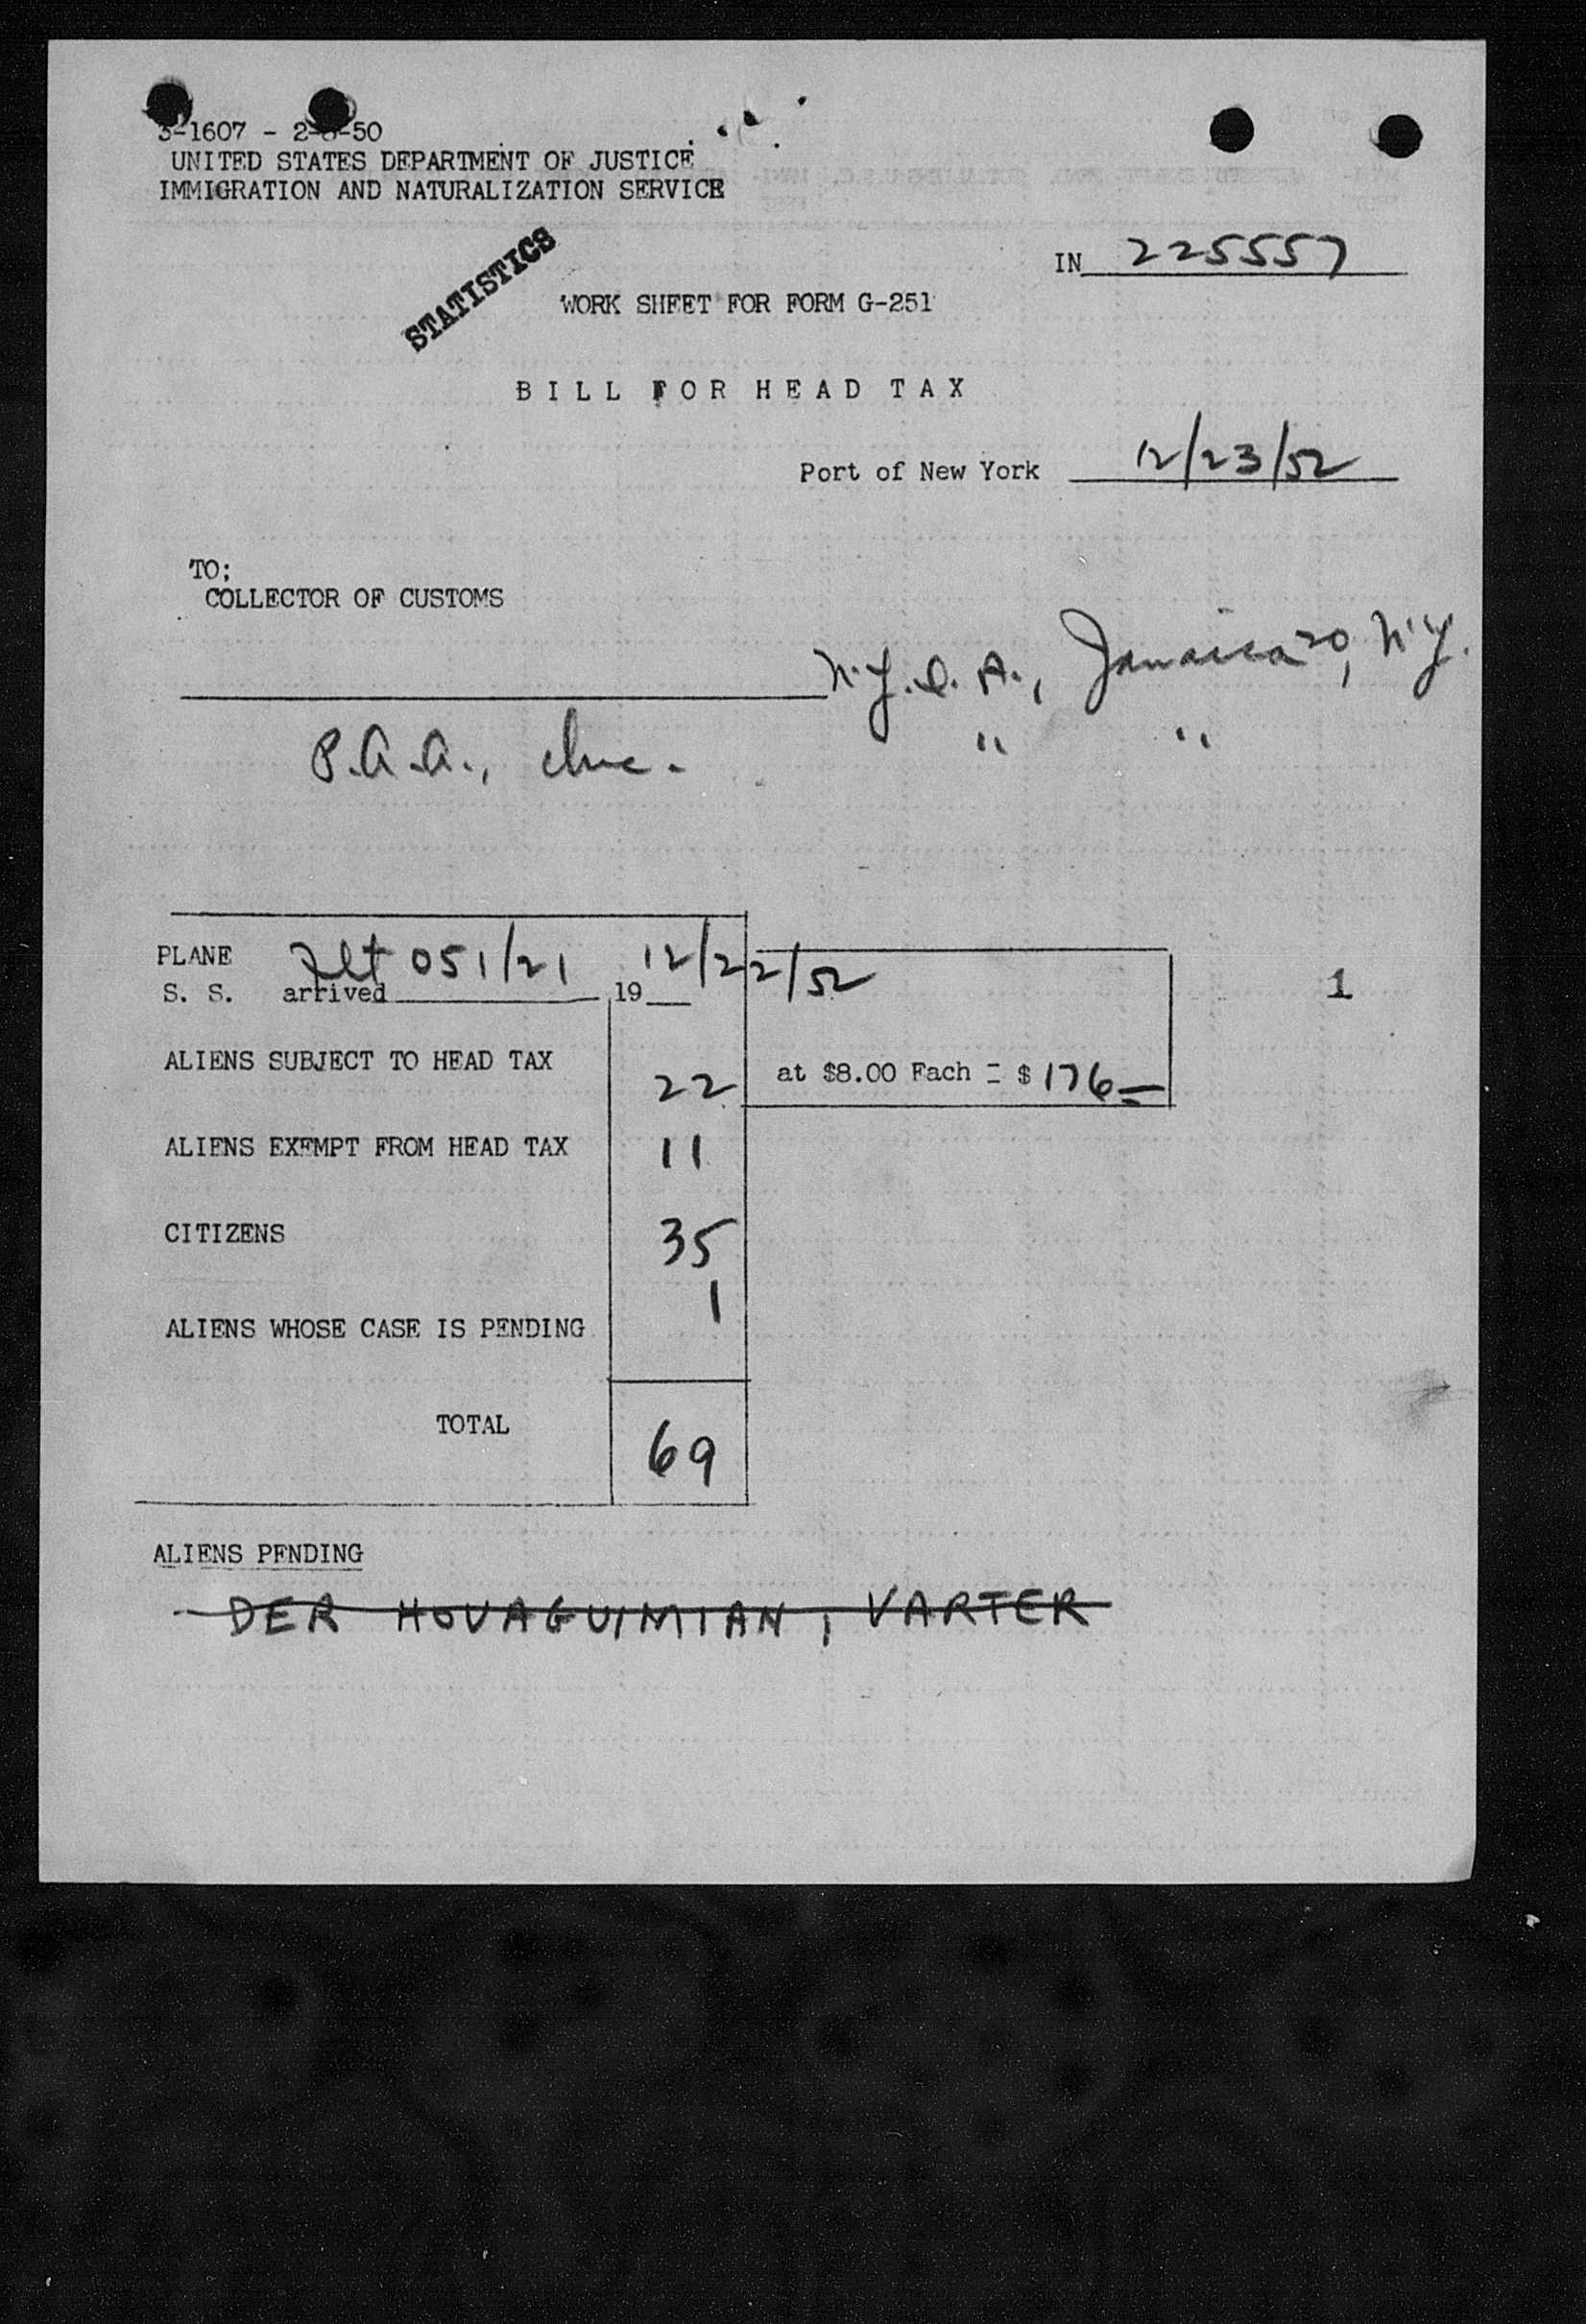 3-1607 - 2-6-50
UNITED STATES DEPARTMENT OF JUSTICE
IMMIGRATION AND NATURALIZATION SERVICE
STATISTICS
IN 225557
WORK SHEET FOR FORM G-251
BILL FOR HEAD TAX
Port of New York 12/23/52
TO;
COLLECTOR OF CUSTOMS
N.Y.I.A., Jamaica 30, N.Y.
P.A.A., Inc. " "
PLANE Flt 051/21 12/22/52
S. S. arrived 19
1
ALIENS SUBJECT TO HEAD TAX 22 at $8.00 Each = $ 176-
ALIENS EXEMPT FROM HEAD TAX 11
CITIZENS 35
ALIENS WHOSE CASE IS PENDING 1
TOTAL 69
ALIENS PENDING
DER HOVAGUIMIAN, VARTER